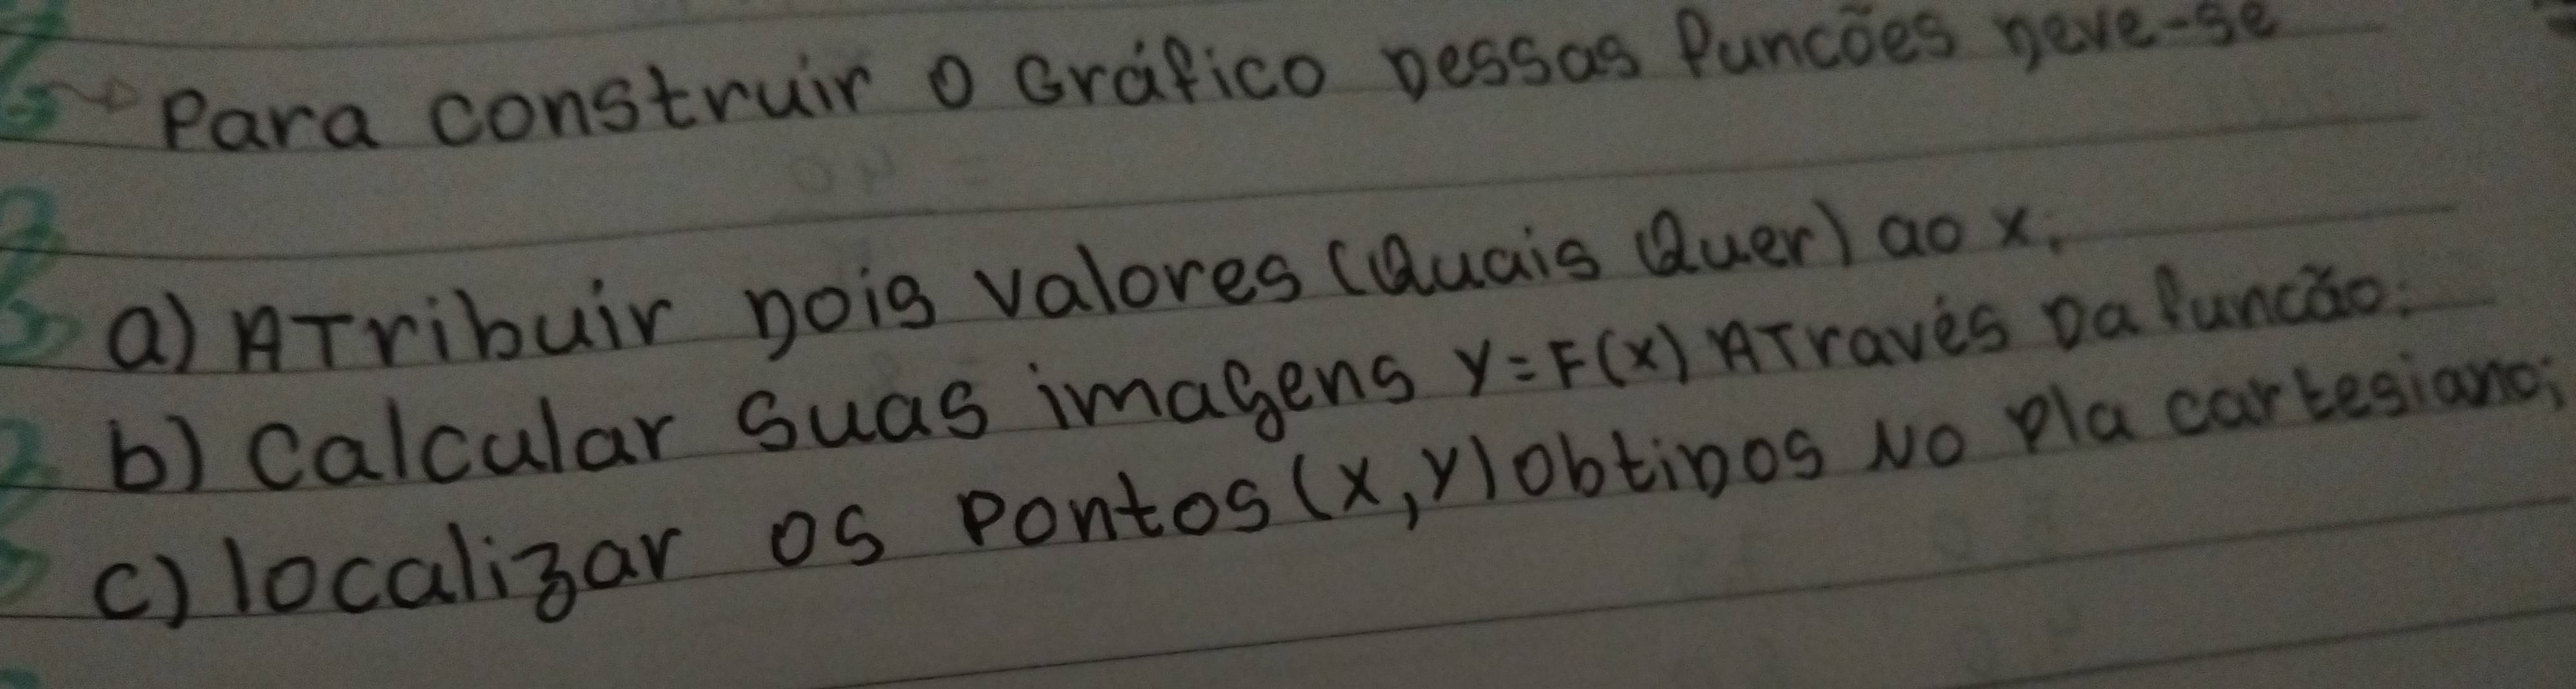 Para construir o Gráfico Dessas funcões Deve-se
a) ATribuir Dois valores (Quais Quer) ao x.
b) Calcular Suas imagens y=F(x) ATravés Da funcão.
c) localizar os Pontos (x,y) obtiDos No Pla cartesiano;